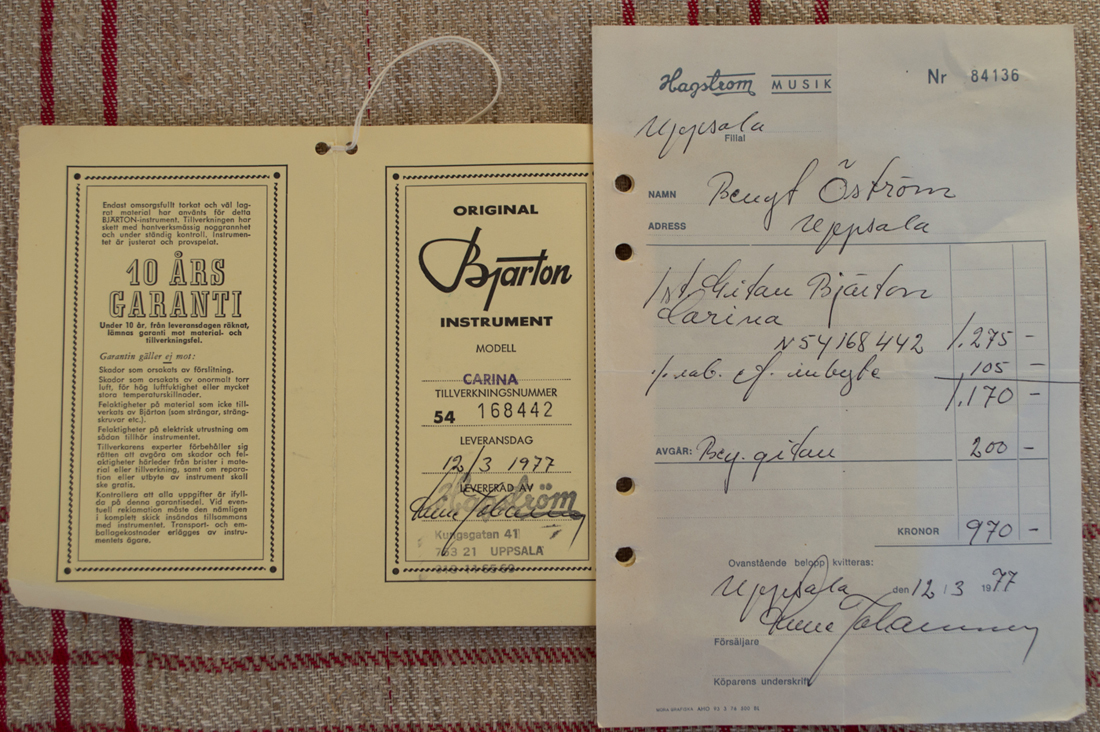 Endast omsorgsfullt torkat och väl lag-
rat material har använts för detta
BJÄRTON-instrument. Tillverkningen har
skett med hantverksmässig noggrannhet
och under ständig kontroll. Instrumen-
tet är justerat och provspelat.
10 ÅRS
GARANTI
Under 10 år, från leveransdagen räknat,
lämnas garanti mot material- och
tillverkningsfel.
Garantin gäller ej mot:
Skador som orsakats av förslitning.
Skador som orsakats av onormalt torr
luft, för hög luftfuktighet eller mycket
stora temperaturskillnader.
Felaktigheter på material som icke till-
verkats av Bjärton (som strängar, sträng-
skruvar etc.).
Felaktigheter på elektrisk utrustning om
sådan tillhör instrumentet.
Tillverkarens experter förbehåller sig
rätten att avgöra om skador och fel-
aktigheter härleder från brister i mate-
rial eller tillverkning, samt om repara-
tion eller utbyte av instrument skall
ske gratis.
Kontrollera att alla uppgifter är ifyll-
da på denna garantisedel. Vid even-
tuell reklamation måste den nämligen
i komplett skick insändas tillsammans
med instrumentet. Transport- och em-
ballagekostnader erlägges av instru-
mentets ägare.
ORIGINAL
Bjärton
INSTRUMENT
MODELL
CARINA
TILLVERKNINGSNUMMER
54 168442
LEVERANSDAG
12/3 1977
LEVERERAD AV
Hagström
Kungsgatan 41
753 21 UPPSALA
Hagstrom MUSIK
Nr 84136
Uppsala
Filial
NAMN Bengt Öström
ADRESS Uppsala
1 st Gitarr Bjärton
Carina
N 54168442 1.275 -
105 -
1.170 -
AVGÅR: Beg. gitarr 200 -
KRONOR 970 -
Ovanstående belopp kvitteras:
Uppsala den 12 / 3 1977
Försäljare
Köparens underskrift